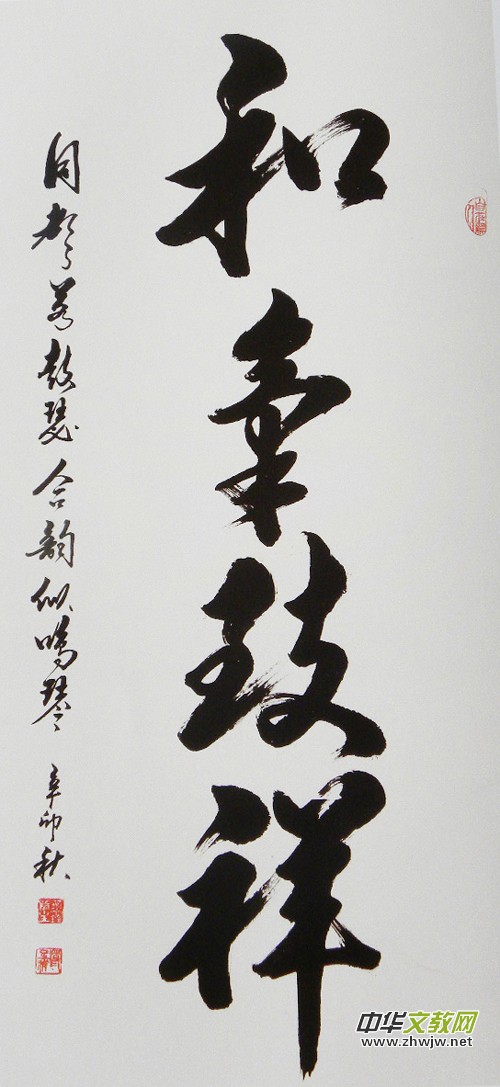 和氣致祥
同聲若鼓瑟合韵似鳴琴
辛卯秋
中华文教网
www.zhwjw.net